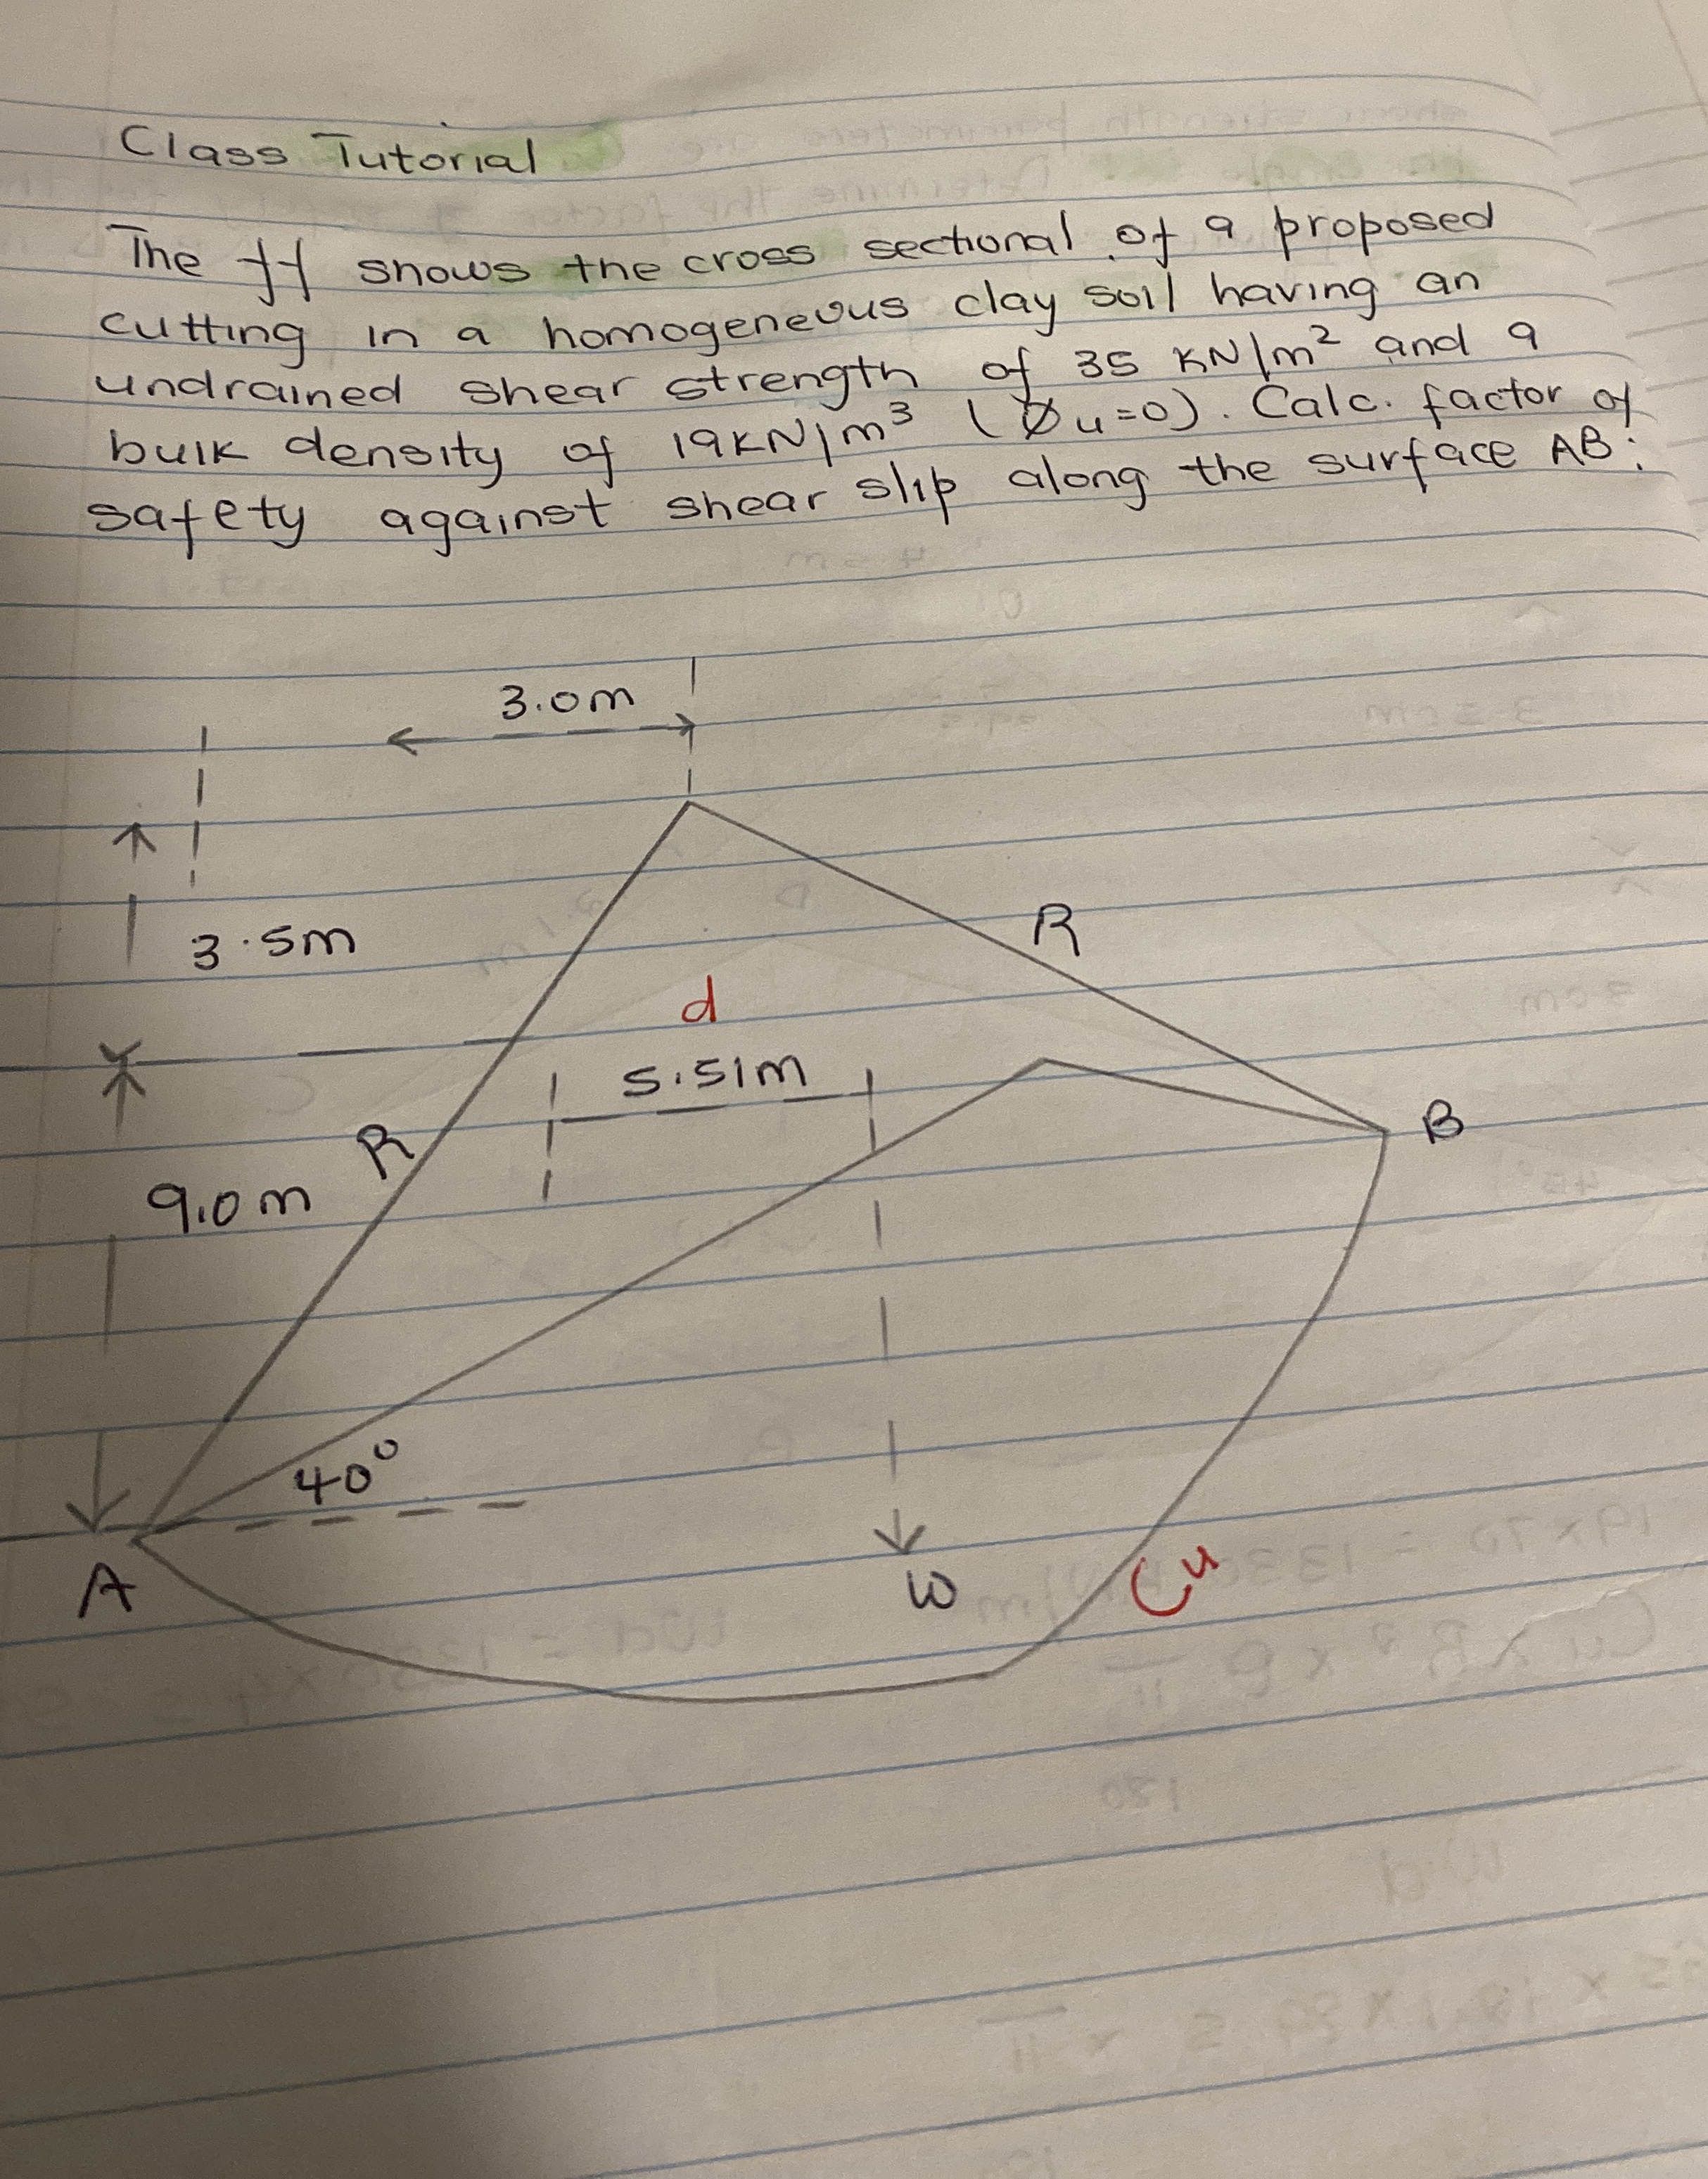 Class Tutorial
The ff shows the cross sectional of a proposed
cutting in a homogeneous clay soil having an
undrained shear strength of 35 KN/m² and a
bulk density of 19KN/m³ (Øu=0). Calc. factor of
safety against shear slip along the surface AB:
3.0m
3.5m
R
d
5.51m
R
B
9.0m
40°
A
W
Cu